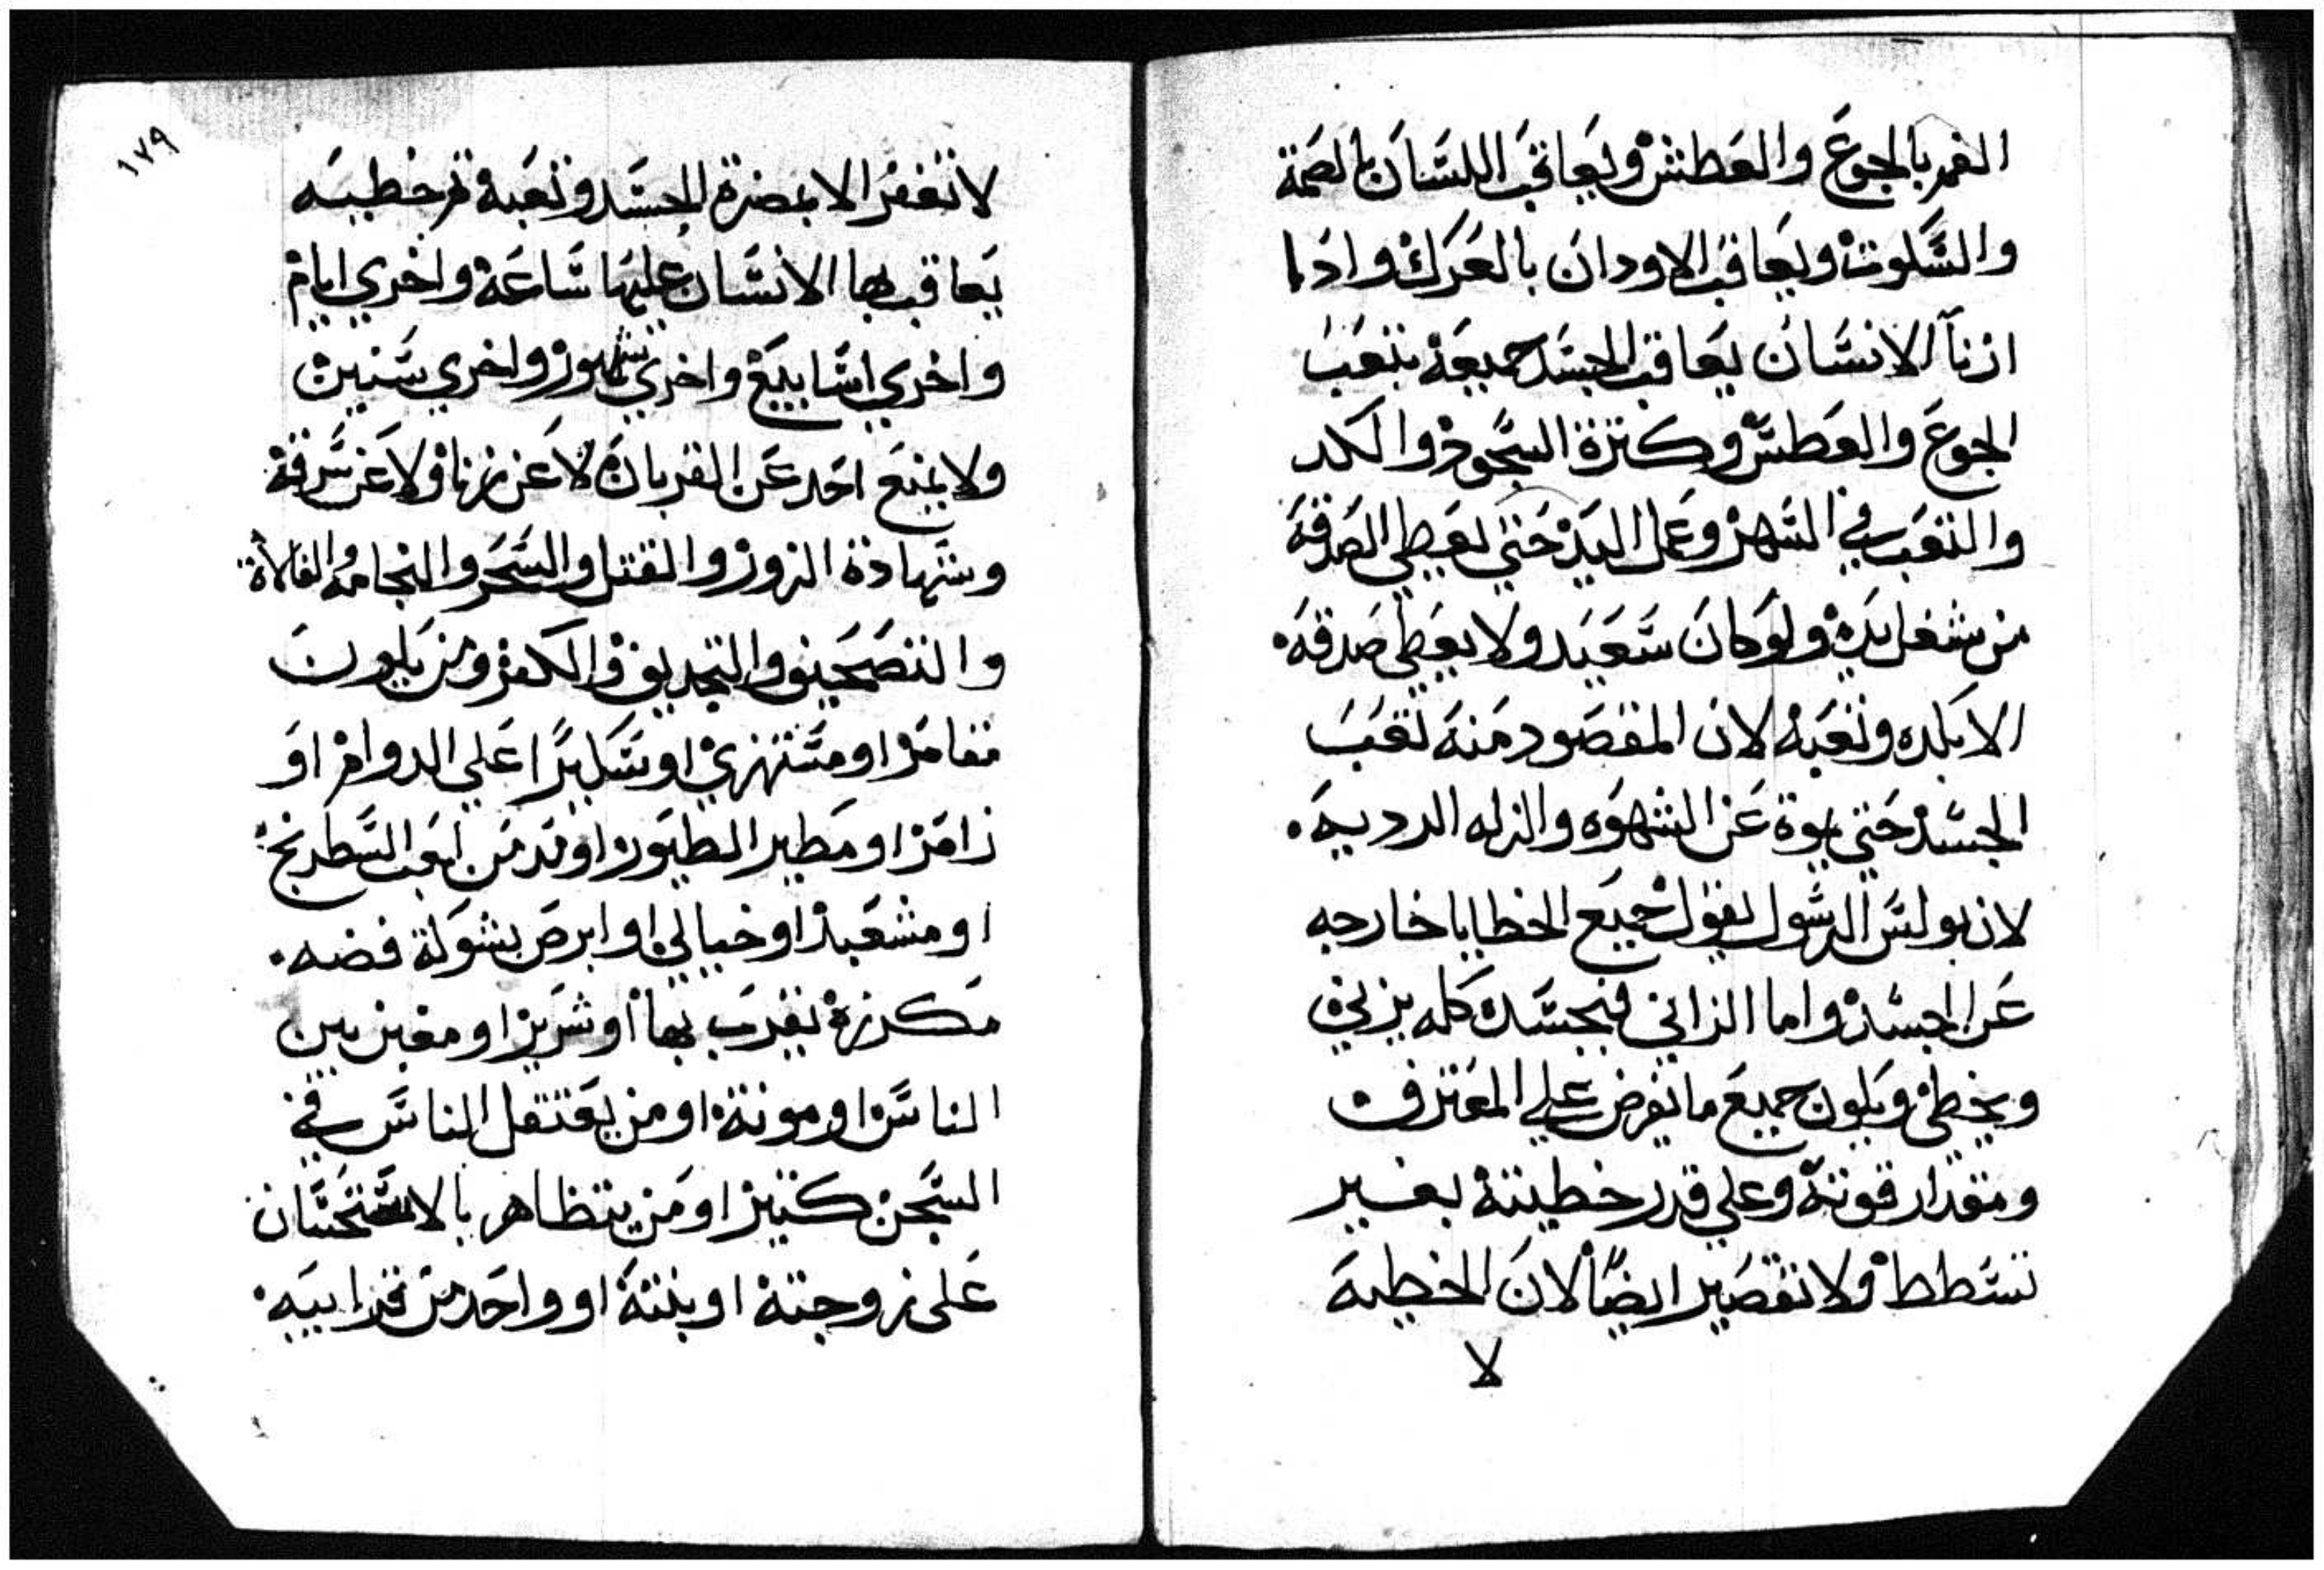 الفم بالجوع والعطش ويعاقب اللسان بالصمة
والسكوت ويعاقب الاودان بالعرك واداما
ازنا الانسان يعاقب الجسد جميعه بتعب
الجوع والعطش وكترة السجود والكد
والتعب في السهر وعمل اليد حتي يعطي الصدقه
من شغل يده ولو كان سعيد ولا يعطي صدقه
الا بكده وتعبه لان المقصود منه تعب
الجسد حتي يموة عن الشهوه والزله الرديه
لان بولس الرسول يقول جميع الخطايا خارجه
عن الجسد واما الزاني فبجسده كله يزني
ويخطي ويكون جميع ما يفرض علي المعترف
ومقدار قوته وعلي قدر خطيته بغير
تشطط ولا تقصير ايضا لان الخطيه
لا
١٧٩
لا تغفر الا بمضرة الجسد وتعبه تم خطيه
يعاقب بها الانسان عليها ساعه واخري ايام
واخري اسابيع واخري شهور واخري سنين
ولا يمنع احد عن القربان لا عن زنا ولا عن سرقة
وشهادة الزور والقتل والسحر والنجامه والفالاة
والتنصحين والتجديف والكفر ومن يكون
مقامر او مستهزي او سكيرا علي الدوام او
زامر او مطير الطيور او مدمن لعب الشطرنج
او مشعبد او خيالي او ابرص بشوكة فضه
مكرزه يقرب بها او شرير او مغبن بين
الناس او مونته او من يعتقل الناس في
السجن كتير او من يتظاهر بالاستحسان
على زوجته او بنته او واحد من قرابيه